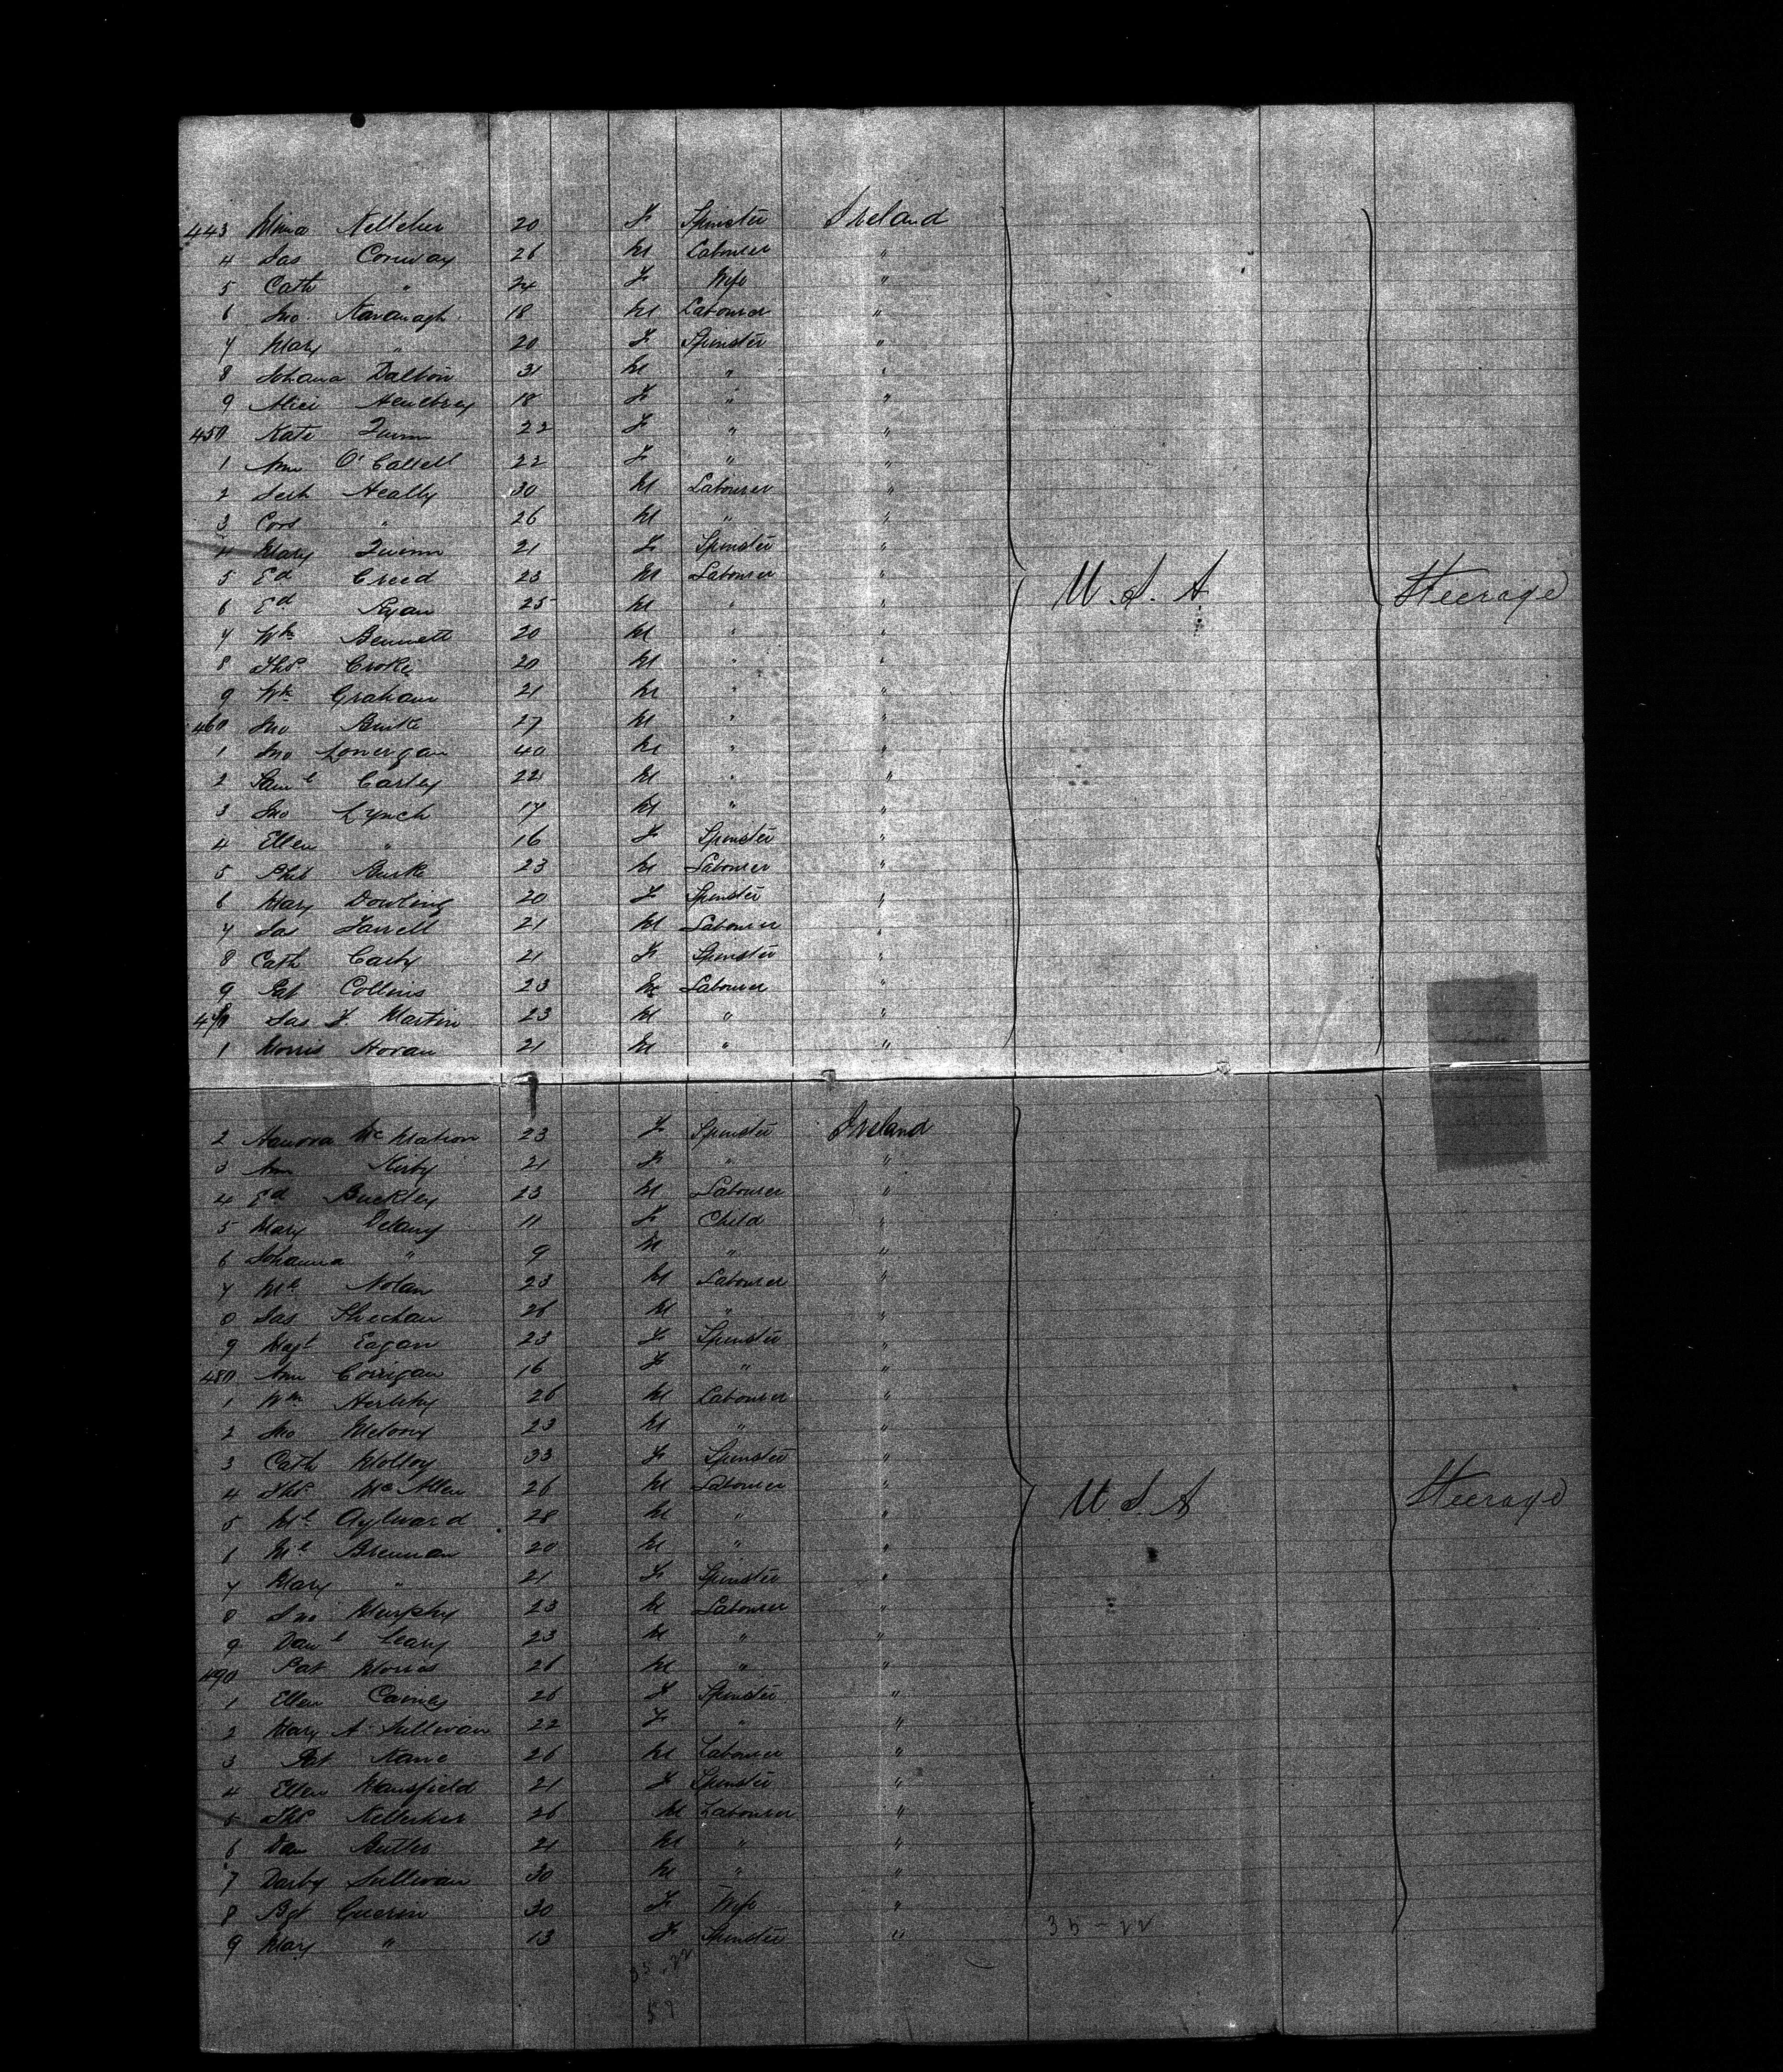 443 Mima Kelleher 20 F Spinster Ireland
4 Jas Conway 26 M Labourer "
5 Cath " 24 F Wife "
6 Jno. Kavanagh 18 M Labourer "
7 Mary " 20 F Spinster "
8 Johana Dalton 31 M " "
9 Alice 18 F " "
450 Kate Quinn 22 F " "
1 Ann 22 F " "
2 Jerh Healy 30 M Labourer "
3 Corn " 26 M " "
4 Mary Quinn 21 F Spinster "
5 Ed Creed 23 M Labourer "
6 Ed Ryan 25 M " " U.S.A. Steerage
7 Wm Bennett 20 M " "
8 Thos Croke 20 M " "
9 Wm Graham 21 M " "
460 Jno Burke 27 M " "
1 Jno Lonergan 40 M " "
2 Saml Carley 22 M " "
3 Jno Lynch 17 M " "
4 Ellen " 16 F Spinster "
5 Burke 23 M Labourer "
6 Mary Dowling 20 F Spinster "
7 Jas Farrell 21 M Labourer "
8 Cath 21 F Spinster "
9 Pat Collins 23 M Labourer "
470 Jas F. Martin 23 M " "
1 Morris Horan 21 M " "
2 Hanora McMahon 23 F Spinster Ireland
3 Ann Kirby 21 F " "
4 Ed Buckley 23 M Labourer "
5 Mary Delany 11 F Child "
6 Johanna " 9 M " "
7 Ml Nolan 23 M Labourer "
8 Jas Sheehan 26 M " "
9 Magt Eagan 23 F Spinster "
480 Ann Corrigan 16 F " "
1 Wm Herlihy 26 M Labourer "
2 Jno Melony 23 M " "
3 Cath Molloy 33 F Spinster "
4 Thos McAllen 26 M Labourer "
5 Ml Aylward 28 M " " U.S.A Steerage
6 Ml Brennan 20 M " "
7 Mary " 21 F Spinster "
8 Jno Murphy 23 M Labourer "
9 Danl Leary 23 M " "
490 Pat Morris 26 M " "
1 Ellen 26 F Spinster "
2 Mary A. Sullivan 22 F " "
3 Pat Kane 26 M Labourer "
4 Ellen Mansfield 21 F Spinster "
5 Thos Kelleher 26 M Labourer "
6 Dan Butler 21 M " "
7 Darby Sullivan 30 M " "
8 Bgt Guerin 30 F Wife "
9 Mary " 13 F Spinster " 35-22
35-22
57